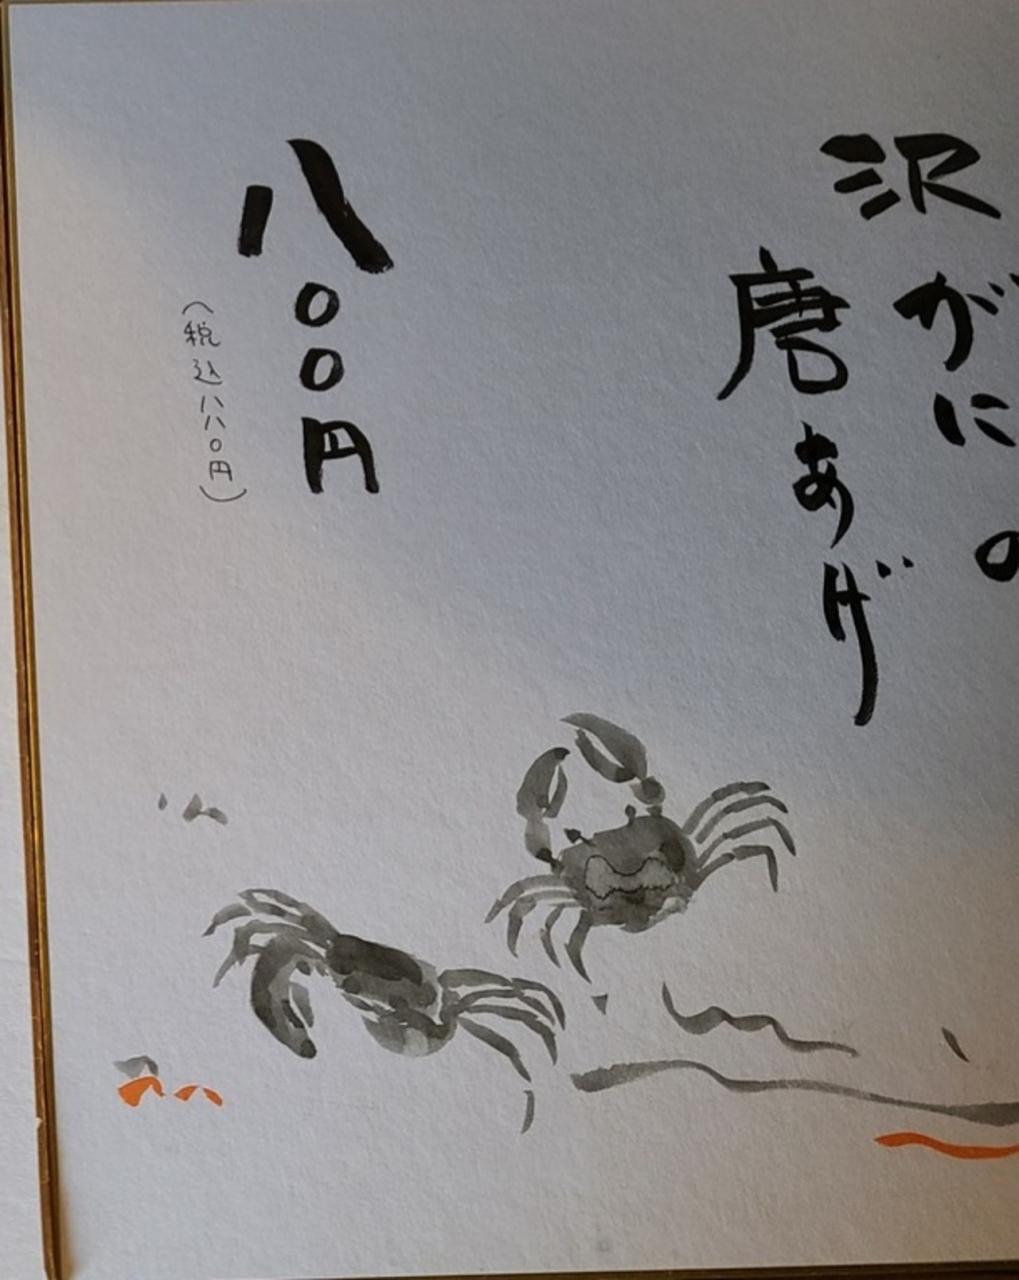 沢がにの
唐あげ
八〇〇円
（税込八八〇円）